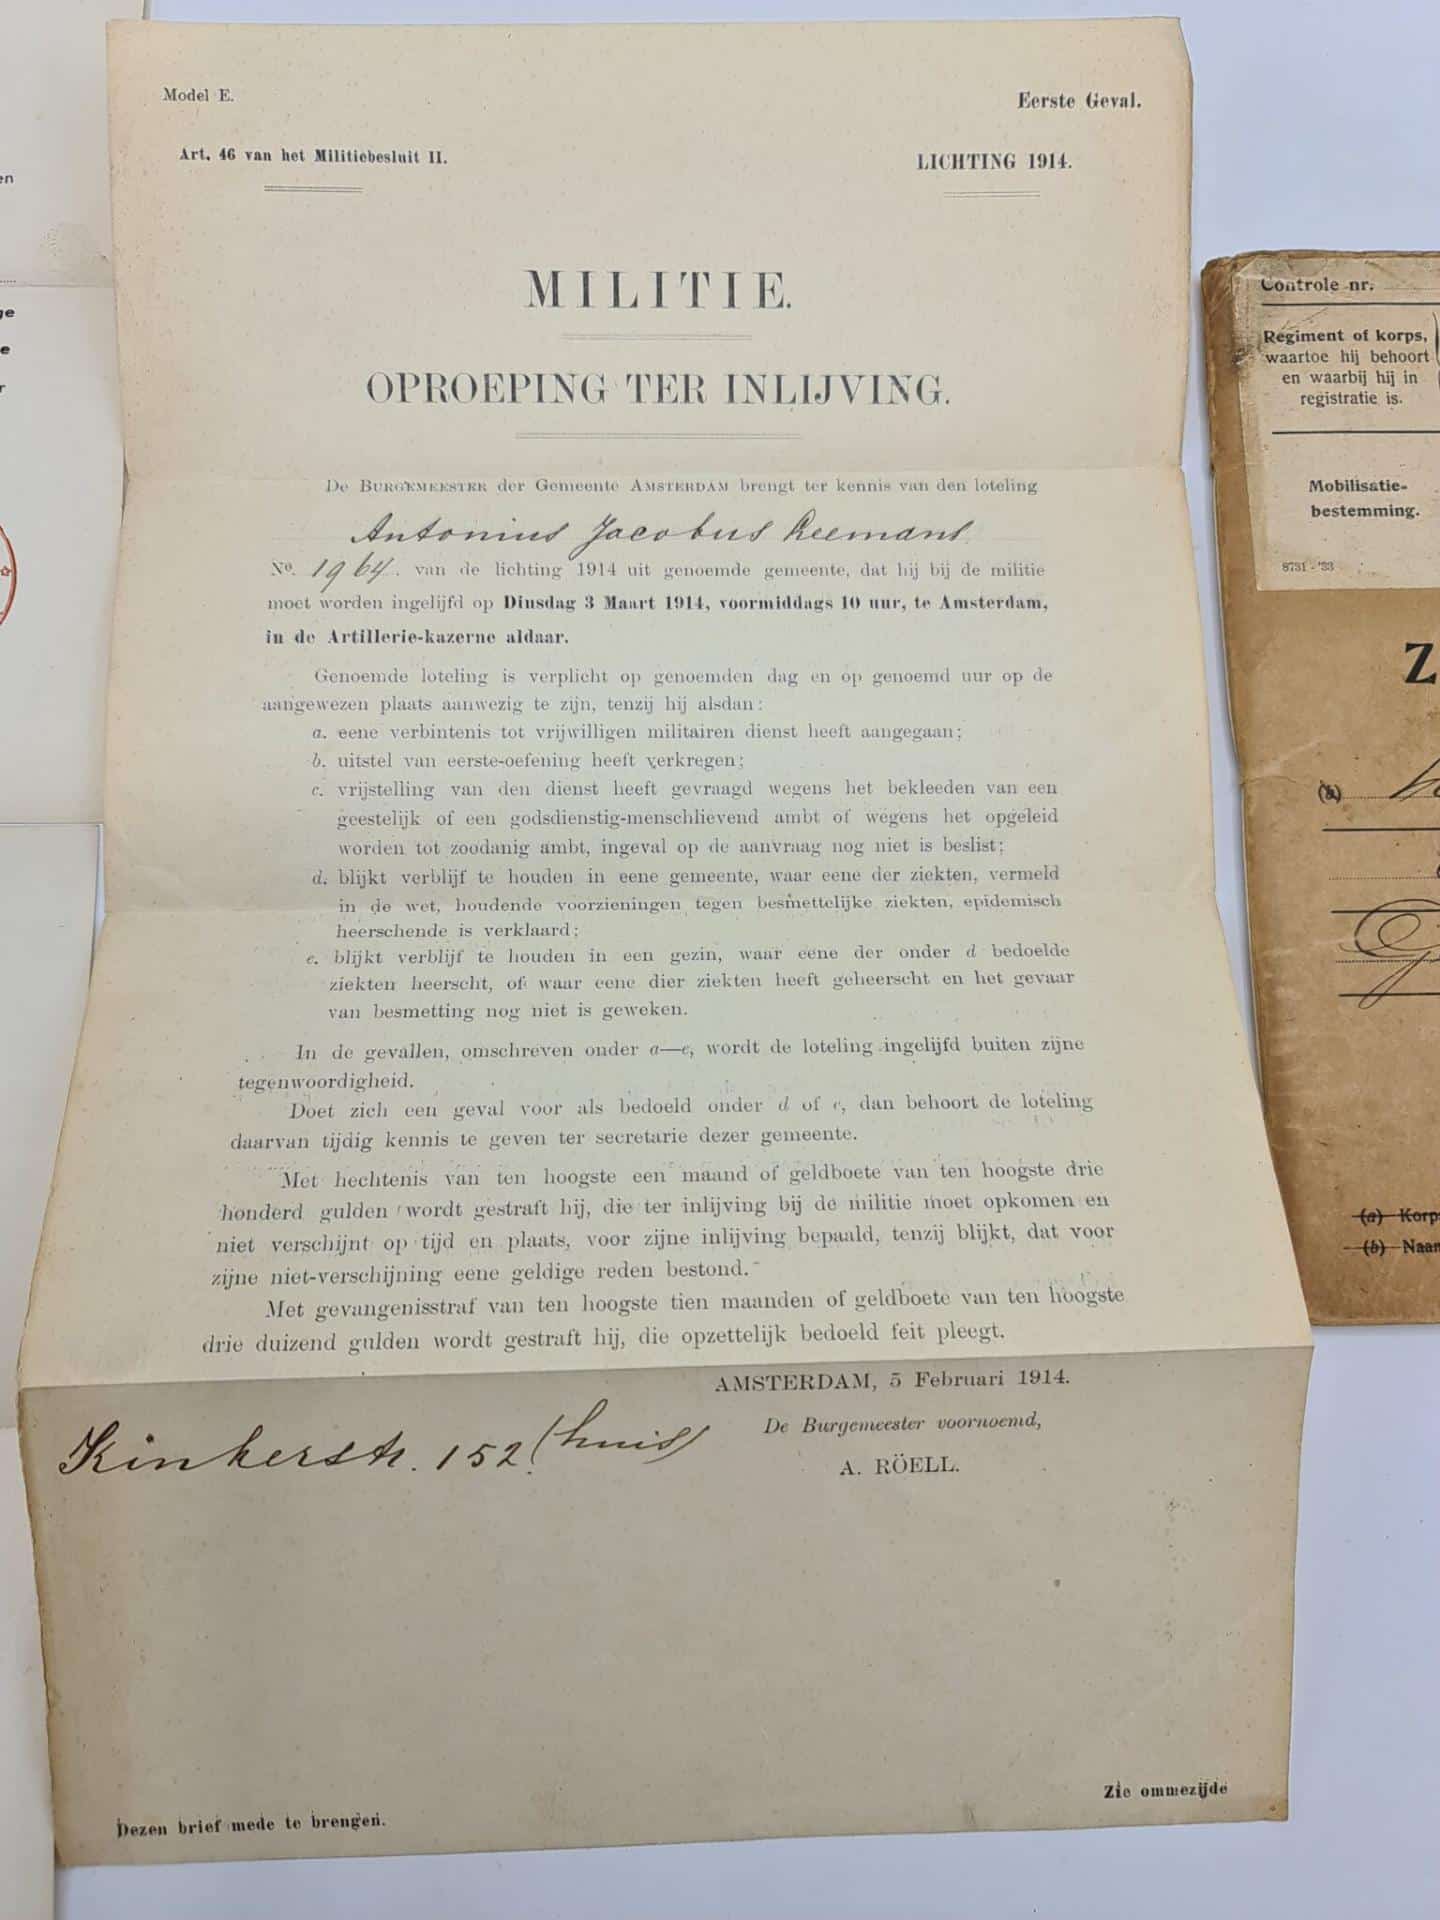 Model E.
Eerste Geval.
Art. 46 van het Militiebesluit II.
LICHTING 1914.
MILITIE.
OPROEPING TER INLIJVING.
De BURGEMEESTER der Gemeente AMSTERDAM brengt ter kennis van den loteling
Antonius Jacobus
No. 1964. van de lichting 1914 uit genoemde gemeente, dat hij bij de militie
moet worden ingelijfd op Dinsdag 3 Maart 1914, voormiddags 10 uur, te Amsterdam,
in de Artillerie-kazerne aldaar.
Genoemde loteling is verplicht op genoemden dag en op genoemd uur op de
aangewezen plaats aanwezig te zijn, tenzij hij alsdan:
a. eene verbintenis tot vrijwilligen militairen dienst heeft aangegaan;
b. uitstel van eerste-oefening heeft verkregen;
c. vrijstelling van den dienst heeft gevraagd wegens het bekleeden van een
geestelijk of een godsdienstig-menschlievend ambt of wegens het opgeleid
worden tot zoodanig ambt, ingeval op de aanvraag nog niet is beslist;
d. blijkt verblijf te houden in eene gemeente, waar eene der ziekten, vermeld
in de wet, houdende voorzieningen tegen besmettelijke ziekten, epidemisch
heerschende is verklaard;
e. blijkt verblijf te houden in een gezin, waar eene der onder d bedoelde
ziekten heerscht, of waar eene dier ziekten heeft geheerscht en het gevaar
van besmetting nog niet is geweken.
In de gevallen, omschreven onder a—e, wordt de loteling ingelijfd buiten zijne
tegenwoordigheid.
Doet zich een geval voor als bedoeld onder d of e, dan behoort de loteling
daarvan tijdig kennis te geven ter secretarie dezer gemeente.
Met hechtenis van ten hoogste een maand of geldboete van ten hoogste drie
honderd gulden wordt gestraft hij, die ter inlijving bij de militie moet opkomen en
niet verschijnt op tijd en plaats, voor zijne inlijving bepaald, tenzij blijkt, dat voor
zijne niet-verschijning eene geldige reden bestond.
Met gevangenisstraf van ten hoogste tien maanden of geldboete van ten hoogste
drie duizend gulden wordt gestraft hij, die opzettelijk bedoeld feit pleegt.
AMSTERDAM, 5 Februari 1914.
De Burgemeester voornoemd,
A. RÖELL.
Kinkerstr. 152 (huis)
Zie ommezijde
Dezen brief mede te brengen.
Controle nr.
Regiment of korps,
waartoe hij behoort
en waarbij hij in
registratie is.
Mobilisatie-
bestemming.
8731 - '33
Z
(b)
(a) Korp
(b) Naam
en
ge
e
r